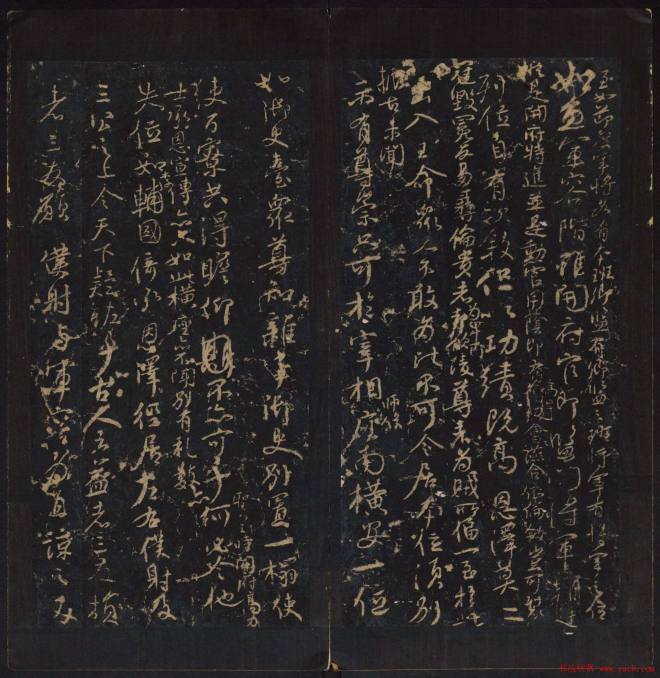 至如節度軍將各有本班卿監有卿監之班將軍有將軍之位
如魚軍容階雖開府官即監門將軍朝廷
縱是開府特進並是勳官用蔭即有高卑會讌合依倫敘豈可裂
列位自有次敘但以功績既高恩澤莫二
冠毀冕反易彝倫貴者為卑所凌尊者為賊所偪一至於此
出入王命眾人不敢為比不可令居本位須別
振古未聞
示有尊崇只可於宰相師保座南橫安一位
如御史臺眾尊知雜事御史別置一榻使
使百寮共得瞻仰不亦可乎何必令他
時開府高力
士承恩宣傳亦只如此橫座亦不聞別有禮數亦
失位如李輔國倚承恩澤徑居左右僕射及
三公之上令天下疑怪乎古人云益者三友損
者三友願僕射與軍容為直諒之友